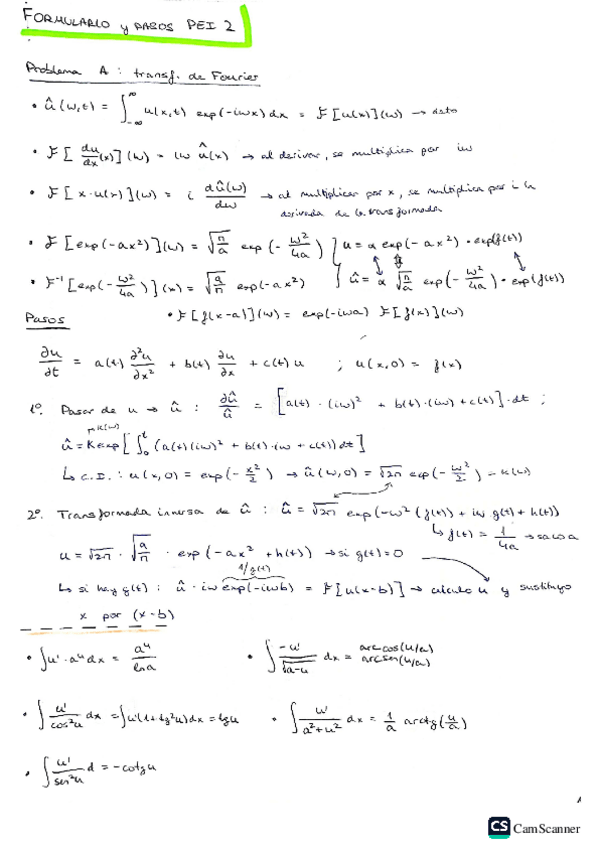 FORMULARIO y PASOS PEI 2
Problema A : transf. de Fourier
• û(w,t) = ∫_{-∞}^{∞} u(x,t) exp(-iwx) dx = F[u(x)](w) → dato
• F[du/dx (x)](w) = iw û(x) → al derivar, se multiplica por iw
• F[x·u(x)](w) = i dû(w)/dw → al multiplicar por x, se multiplica por i la
derivada de la transformada
• F[exp(-ax²)](w) = √(π/a) exp(-w²/4a) } u = α exp(-ax²) · exp(f(t))
• F⁻¹[exp(-w²/4a)](x) = √(a/π) exp(-ax²) } û = α √(π/a) exp(-w²/4a) · exp(f(t))
• F[f(x-a)](w) = exp(-iwa) F[f(x)](w)
Pasos
∂u/∂t = a(t) ∂²u/∂x² + b(t) ∂u/∂x + c(t) u ; u(x,0) = f(x)
1º. Pasar de u → û : ∂û/û = [a(t)·(iw)² + b(t)·(iw) + c(t)]·dt ;
K(w)
û = K exp[∫₀ᵗ (a(t)(iw)² + b(t)·iw + c(t)) dt]
↳ C.I. : u(x,0) = exp(-x²/2) → û(w,0) = √2π exp(-w²/2) = K(w)
2º. Transformada inversa de û : û = √2π exp(-w²(f(t)) + iw g(t) + h(t))
↳ f(t) = 1/4a → saco a
u = √2π · √(a/π) · exp(-ax² + h(t)) → si g(t) = 0
↳ si hay g(t) : û · iw exp(-iwb) = F[u(x-b)] → calculo u y sustituyo
x por (x-b)
• ∫u'·aᵘ dx = aᵘ/ln a • ∫ -u'/√(a-u) dx = arccos(u/a) arcsen(u/a)
• ∫ u'/cos²u dx = ∫u'(1+tg²u) dx = tg u • ∫ u'/(a²+u²) dx = 1/a arctg(u/a)
• ∫ u'/sen²u d = -cotg u
CS CamScanner